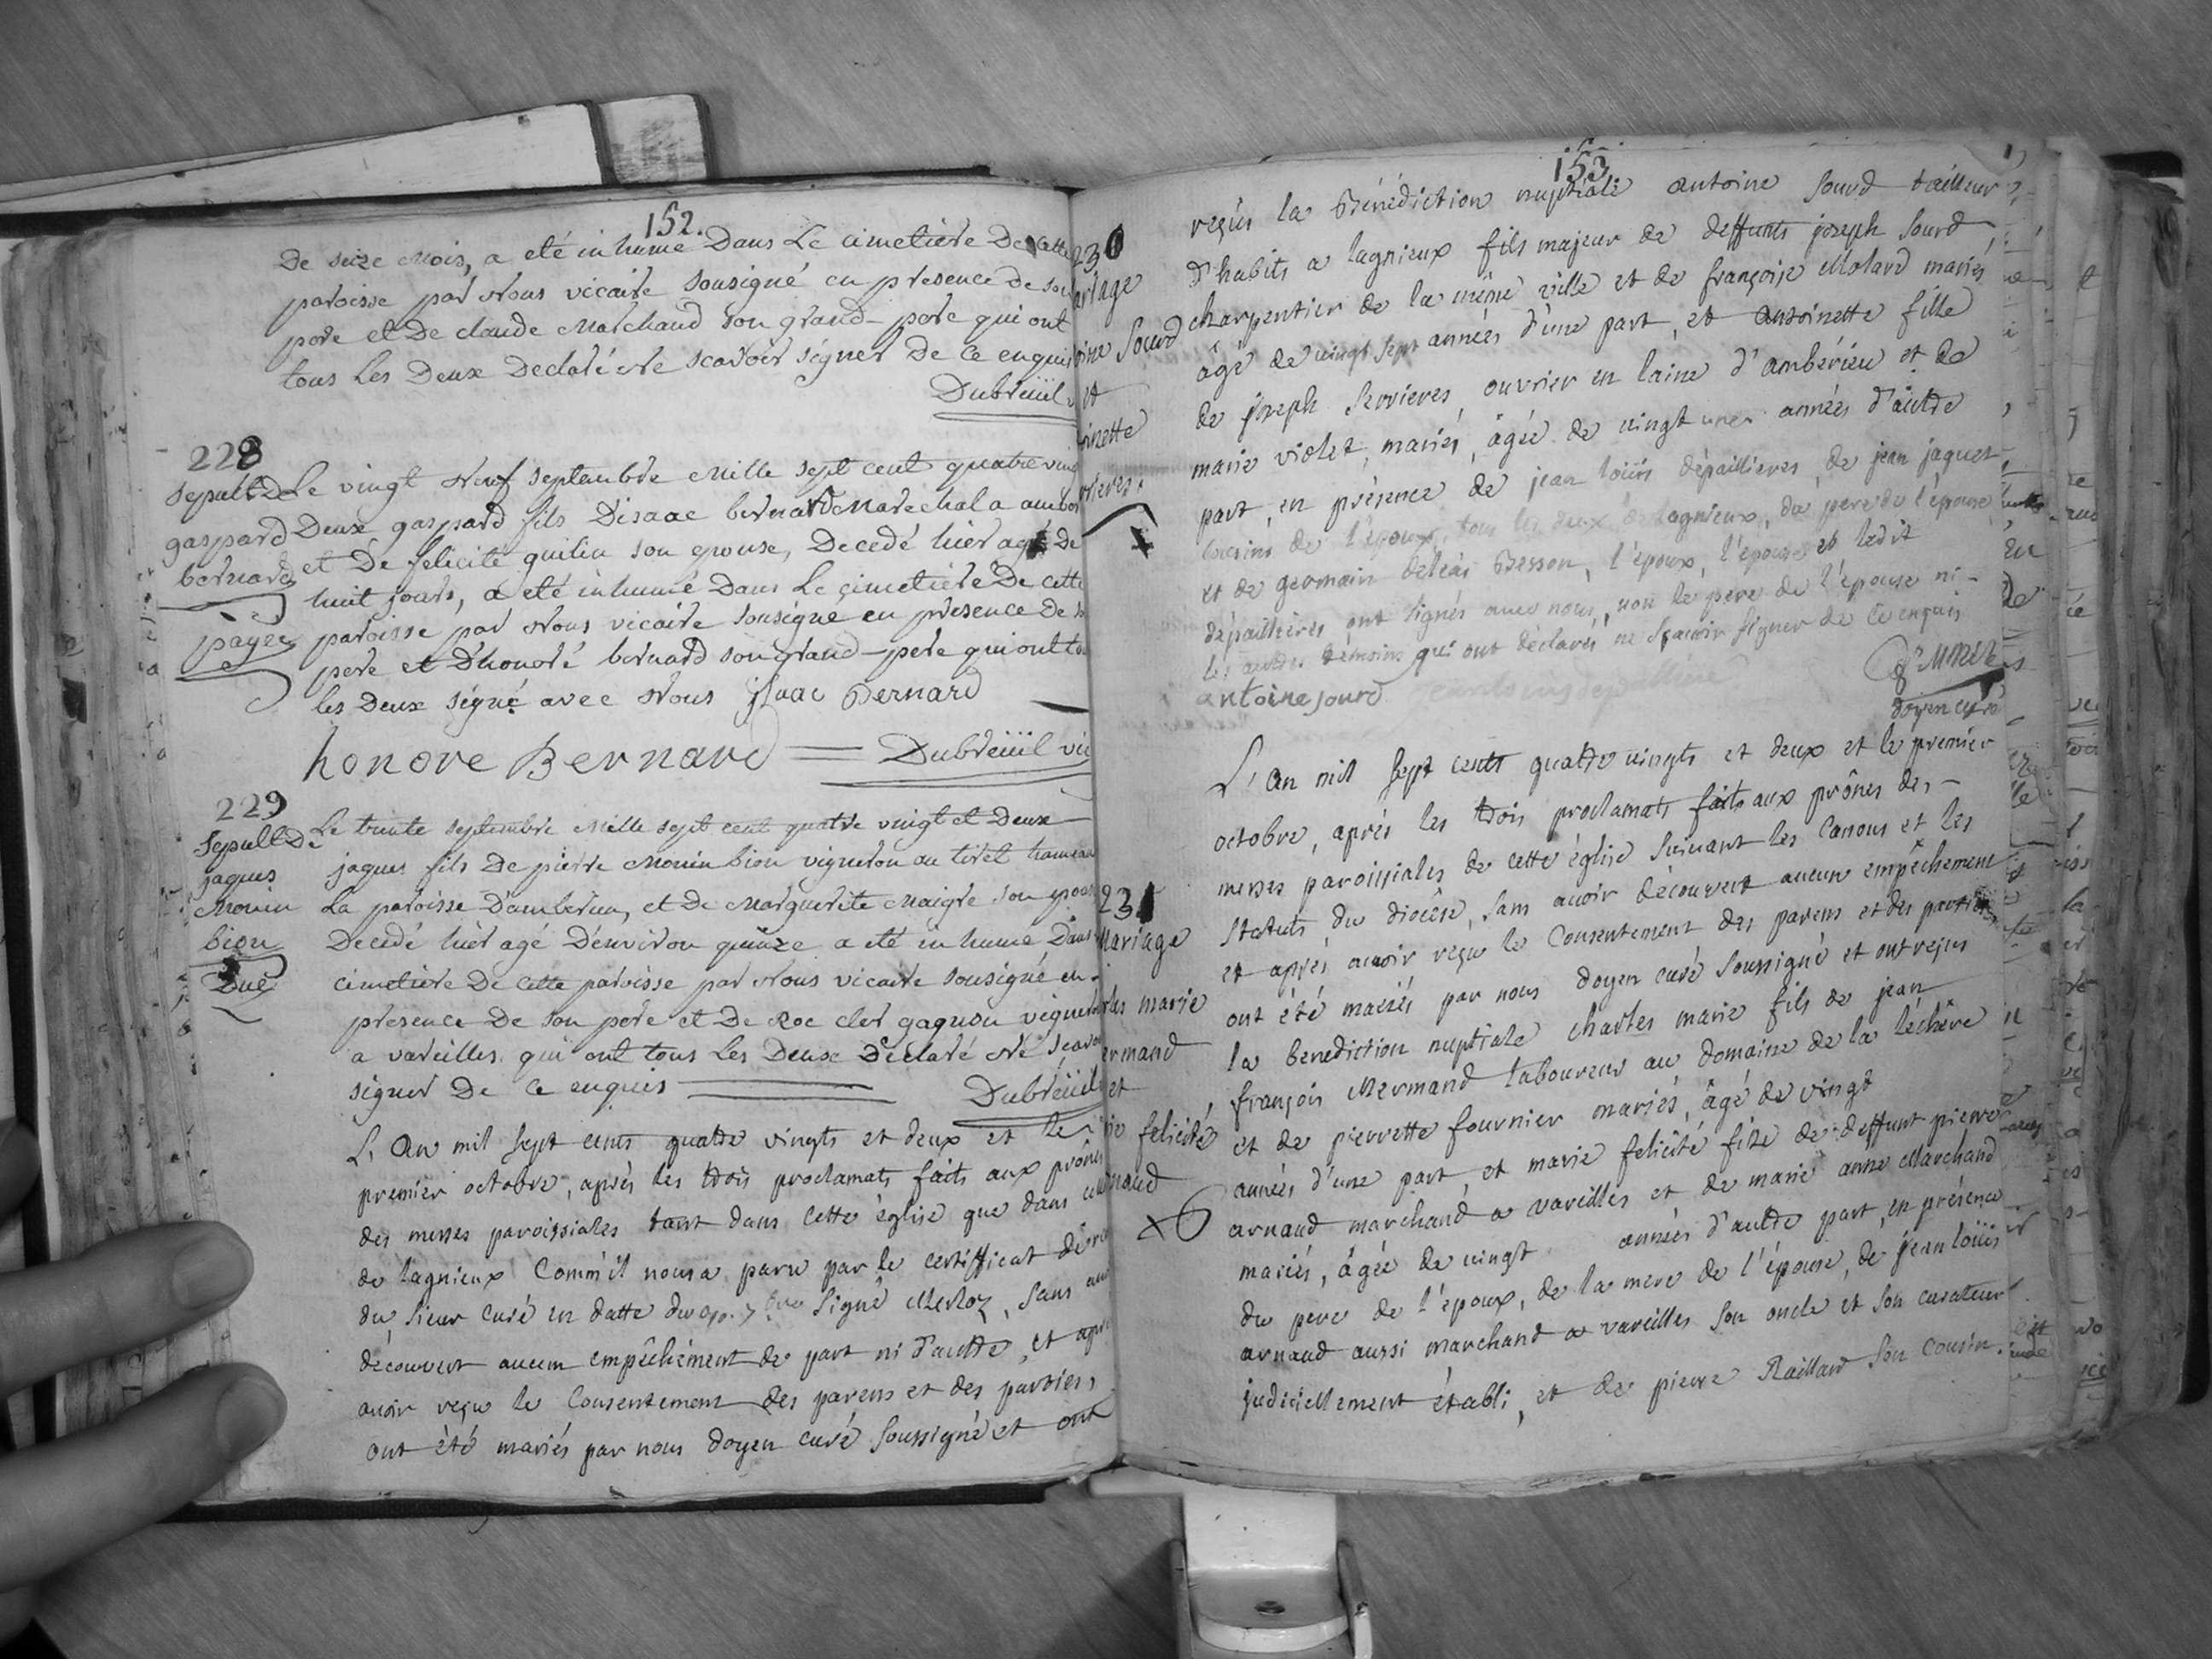 152.
De seize mois, a eté inhumé Dans Le cimetiere De cette
paroisse par Nous vicaire sousigné en presence de son
pere et De claude Marchand son grand-pere qui ont
tous Les Deux Declaré Ne scavoir signer De ce enquis
Dubreüil
228
Sepultde
gaspard
bernard
payez
Le vingt Neuf septembre Mille sept cent quatre ving
Deux gaspard fils Disaac bernard Marechal a amber
et De felicité quilin son epouse, Decedé hiér agé De
huit jours, a eté inhumé Dans Le cimetiére De cette
paroisse par Nous vicaire sousigné en presence De s
pere et D'honoré bernard son grand-pere qui ont to
les Deux signé avec Nous jsaac Bernard
honore Bernard Dubreüil vic
229
Sepultde
jaques
Monin
bion
Due
Le trente septembre Mille sept cent quatre vingt et Deux
jaques fils De pierre Monin bion vigneron au tiret hameau
La paroisse D'amberieu, et De Marguerite Maigre son epous
Decedé hiér agé D'environ quinze a eté inhumé Dans
cimetiere De cette paroisse par Nous vicaire sousigné en
presence De son pere et De Roc cler gagnon vigneron
a vareilles qui ont tous Les Deux Declaré Ne scavoi
signer De ce enquis Dubreüil
L'an mil sept cents quatre vingts et deux et le
premier octobre, aprés les trois proclamats faits aux prônes
des messes paroissiales tant dans cette église que dans
de lagnieux comm'il nous a paru par le certifficat de
du sieur curé en datte du 7bre signé Merloz, sans
découvert aucun empêchement de part ni d'autre, et apr
avoir reçu le consentement des parens et des parties,
ont été mariés par nous doyen curé soussigné et ont
153
230
ariage
oine Sourd
et
inette
rieres
reçus la bénédiction nuptiale antoine sourd tailleur
d'habits a lagnieux fils majeur de deffunts joseph sourd
charpentier de la même ville et de françoise Molard mariés
âgé de vingt sept années d'une part, et antoinette fille
de joseph Serrieres, ouvrier en laine d'ambérieu et de
marie violet, mariés, âgée de vingt une années d'autre
part, en présence de jean loüis dépaillieres, de jean jaquet,
cousins de l'époux, tous les deux de lagnieux, du pere de l'épouse
et de germain Besson, l'époux, l'épouse et ledit
dépaillieres ont signés avec nous, non le pere de l'épouse ni
les autres témoins qui ont déclarés ne sçavoir signer de ce enquis
antoine sourd
doyen curé
231
Mariage
les marie
ermand
et
ie felicité
naud
L'an mil sept cents quatre vingts et deux et le premier
octobre, aprés les trois proclamats faits aux prônes des
messes paroissiales de cette église suivant les canons et les
statuts du diocêse, sans avoir découvert aucun empêchement
et aprés avoir reçu le consentement des parens et des parties
ont été mariés par nous doyen curé soussigné et ont reçus
la benediction nuptiale charles marie fils de jean
françois Mermand laboureur au domaine de la léchére
et de pierrette fournier mariés, âgé de vingt
années d'une part, et marie felicité fille de deffunt pierre
arnaud marchand a vareilles et de marie anne Marchand
mariés, âgée de vingt années d'autre part, en présence
du pere de l'époux, de la mere de l'épouse, de jean loüis
arnaud aussi marchand a vareilles son oncle et son curateur
judiciellement établi, et de pierre Raillard son cousin